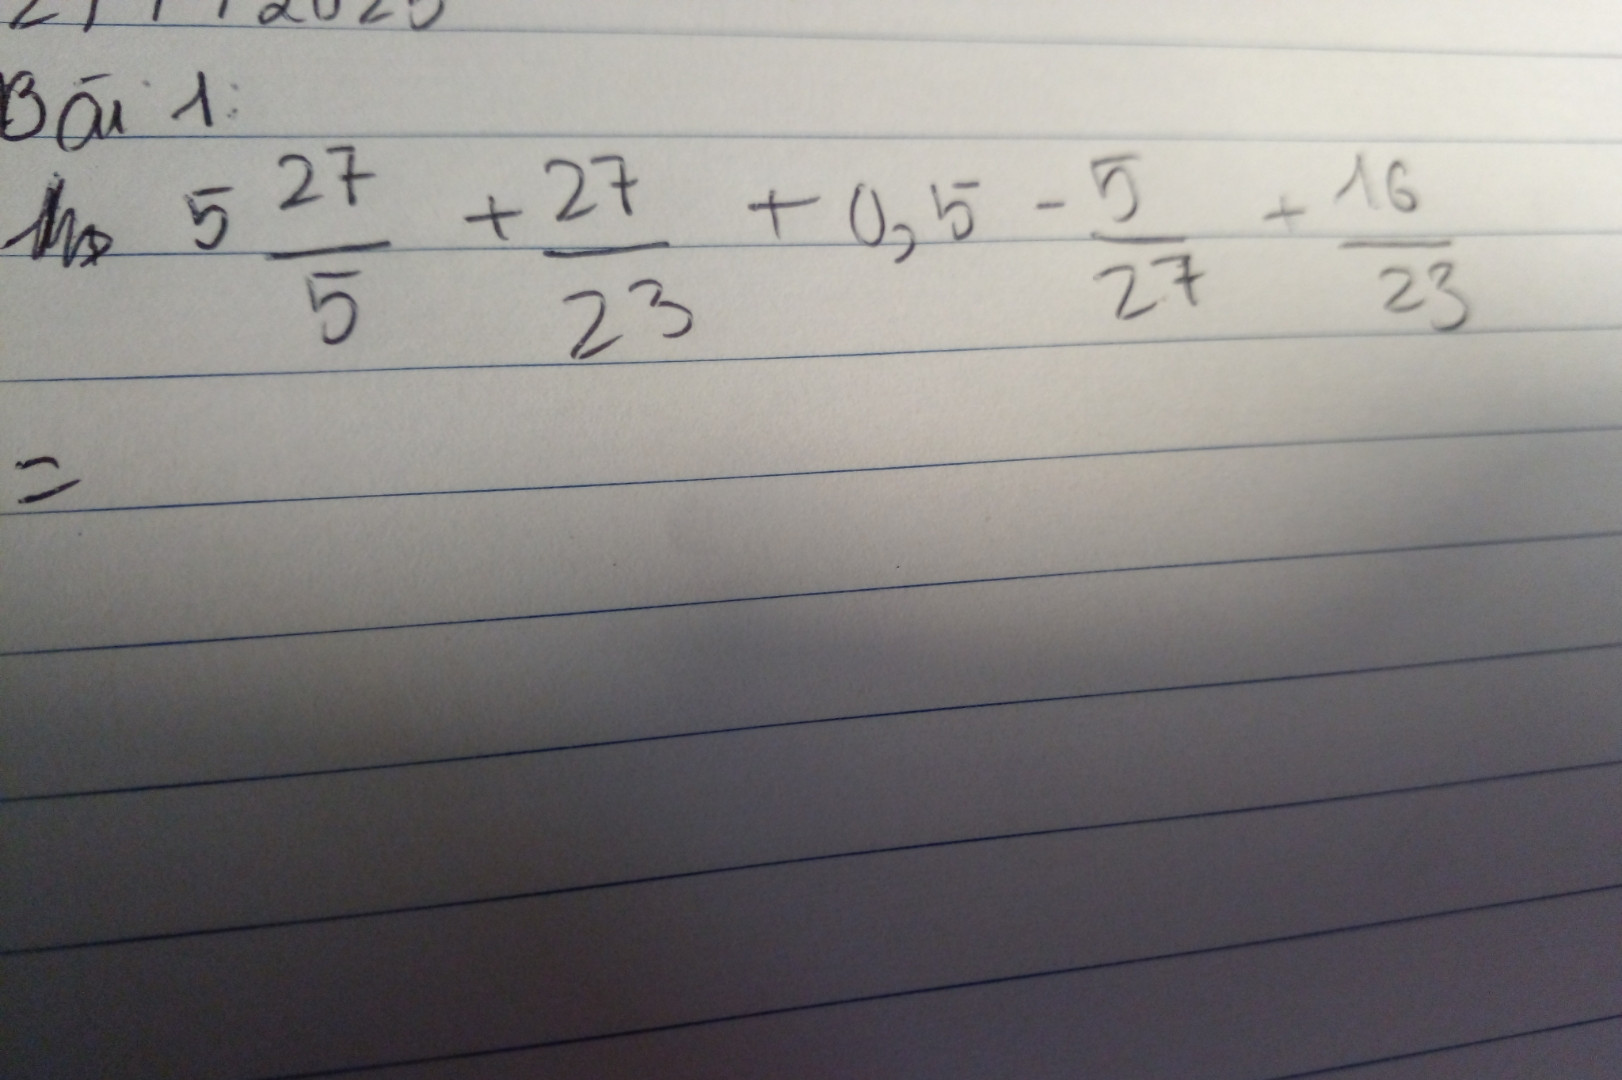 2025
Bài 1:
5 27/5 + 27/23 + 0,5 - 5/27 + 16/23
=